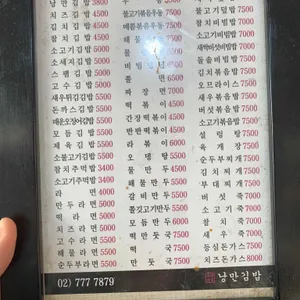 낭만김밥 3800
치즈김밥 4500
김치김밥 4500
참치김밥 4500
소고기김밥 5000
소세지김밥 5000
스팸김밥 5000
고추김밥 5000
새우튀김김밥 5500
돈까스김밥 5500
매운오징어김밥 5500
모듬김밥 5500
제육김밥 5500
소불고기김밥 5500
참치주먹밥 3400
소고기주먹밥 3400
라면 4000
만두라면 5000
떡라면 5000
치즈라면 5000
고수라면 5500
해물라면 5500
순두부라면 5500
우동
불고기볶음우동
해물볶음우동
쫄면 6500
짜장면 7000
떡볶이 4500
간장떡볶이 4500
반반떡볶이 4500
라볶이 6000
오뎅탕 5500
물만두 4500
해물만두 5500
갈비만두 5500
쫄깃고기만두 5500
모듬만두 6000
떡만둣국 7500
떡국 7500
만둣국 7500
불고기덮밥 7500
참치비빔밥 7500
소고기비빔밥 7500
새싹버섯비빔밥 7500
돌솥비빔밥 7500
오므라이스 7500
새우볶음밥 7500
김치볶음밥 7500
참치볶음밥 7500
설렁탕 7500
육개장 7500
순두부찌개 7500
김치찌개 7500
부대찌개 7500
소고기죽 7500
참치죽 7500
새우죽 7500
등심돈까스 7500
치즈돈까스 8000
02) 777 7879
낭만김밥